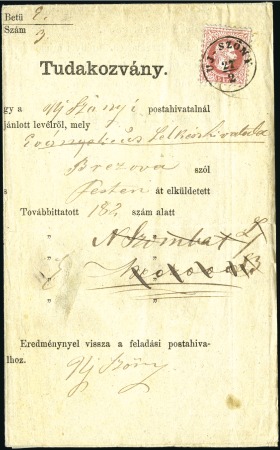 Betü
Szám 3
UJ SZÖNY
Tudakozvány.
gy a Uj Szönyi postahivatalnál
jánlott levélről, mely
Evangelicus Lelkészi hivatal
Brezová szól
s Pesten át elküldetett
Továbbittatott 182 szám alatt
" N Szombat
"
"
"
Eredménynyel vissza a feladási postahiva-
lhoz.
Uj Szöny